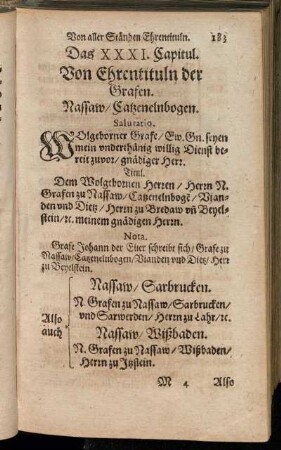 Von aller Ständen Ehrentituln. 183
Das XXXI. Capitul.
Von Ehrentituln der
Grafen.
Nassaw/Catzenelnbogen.
Salutatio.
WOlgeborner Grafe/Ew. Gn. seyen
mein vnderthänig willig Dienst be-
reit zuvor/gnädiger Herr.
Titul.
Dem Wolgebornen Herren/Herrn N.
Grafen zu Nassaw/Catzenelnbogē/Vian-
den vnd Dietz/Herrn zu Bredaw vñ Beyel-
stein/ꝛc. meinem gnädigen Herrn.
Nota.
Grafe Johann der Elter schreibt sich/Grafe zu
Nassaw/Catzenelnbogen/Vianden vnd Dietz/Herr
zu Beyelstein.
Nassaw/Sarbrucken.
N. Grafen zu Nassaw/Sarbrucken/
vnd Sarwerden/Herrn zu Lahr/ꝛc.
Also
auch
Nassaw/Wißbaden.
N. Grafen zu Nassaw/Wißbaden/
Herrn zu Itzstein.
M 4 Also